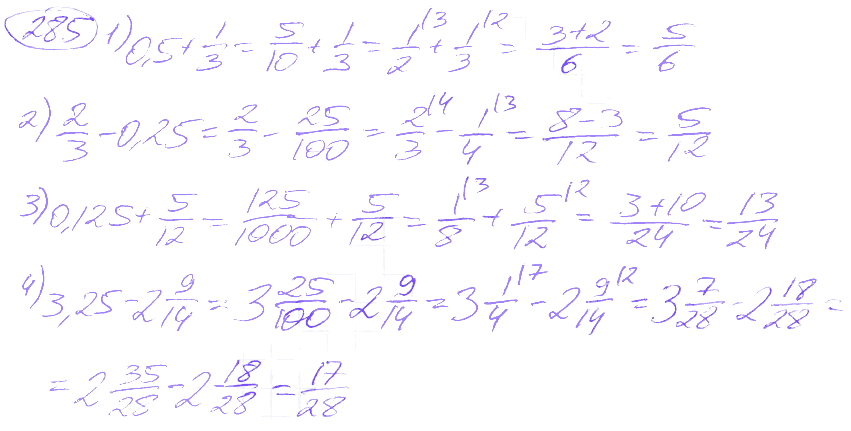 285 1) 0,5 + 1/3 = 5/10 + 1/3 = 1/2 \3 + 1/3 \2 = (3+2)/6 = 5/6
2) 2/3 - 0,25 = 2/3 - 25/100 = 2/3 \4 - 1/4 \3 = (8-3)/12 = 5/12
3) 0,125 + 5/12 = 125/1000 + 5/12 = 1/8 \3 + 5/12 \2 = (3+10)/24 = 13/24
4) 3,25 - 2 9/14 = 3 25/100 - 2 9/14 = 3 1/4 \7 - 2 9/14 \2 = 3 7/28 - 2 18/28 =
= 2 35/28 - 2 18/28 = 17/28